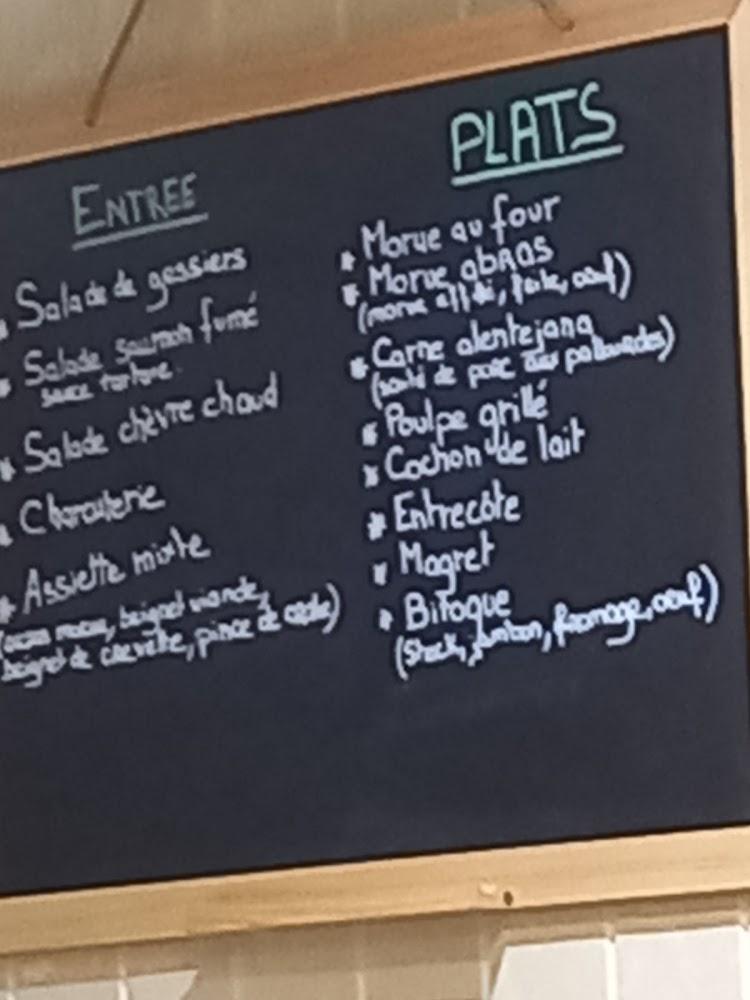 ENTREE
Salade de gessiers
Salade saumon fumé
sauce tartare
Salade chèvre chaud
Charcuterie
Assiette mixte
morue, beignet viande,
beignet de crevette, pince de crabe)
PLATS
Morue au four
Morue abRAS
(morue, oeuf)
Carne alentejana
(sauté de porc aux palourdes)
Poulpe grillé
Cochon de lait
Entrecôte
Magret
Bitoque
(Steack, jambon, fromage, oeuf)